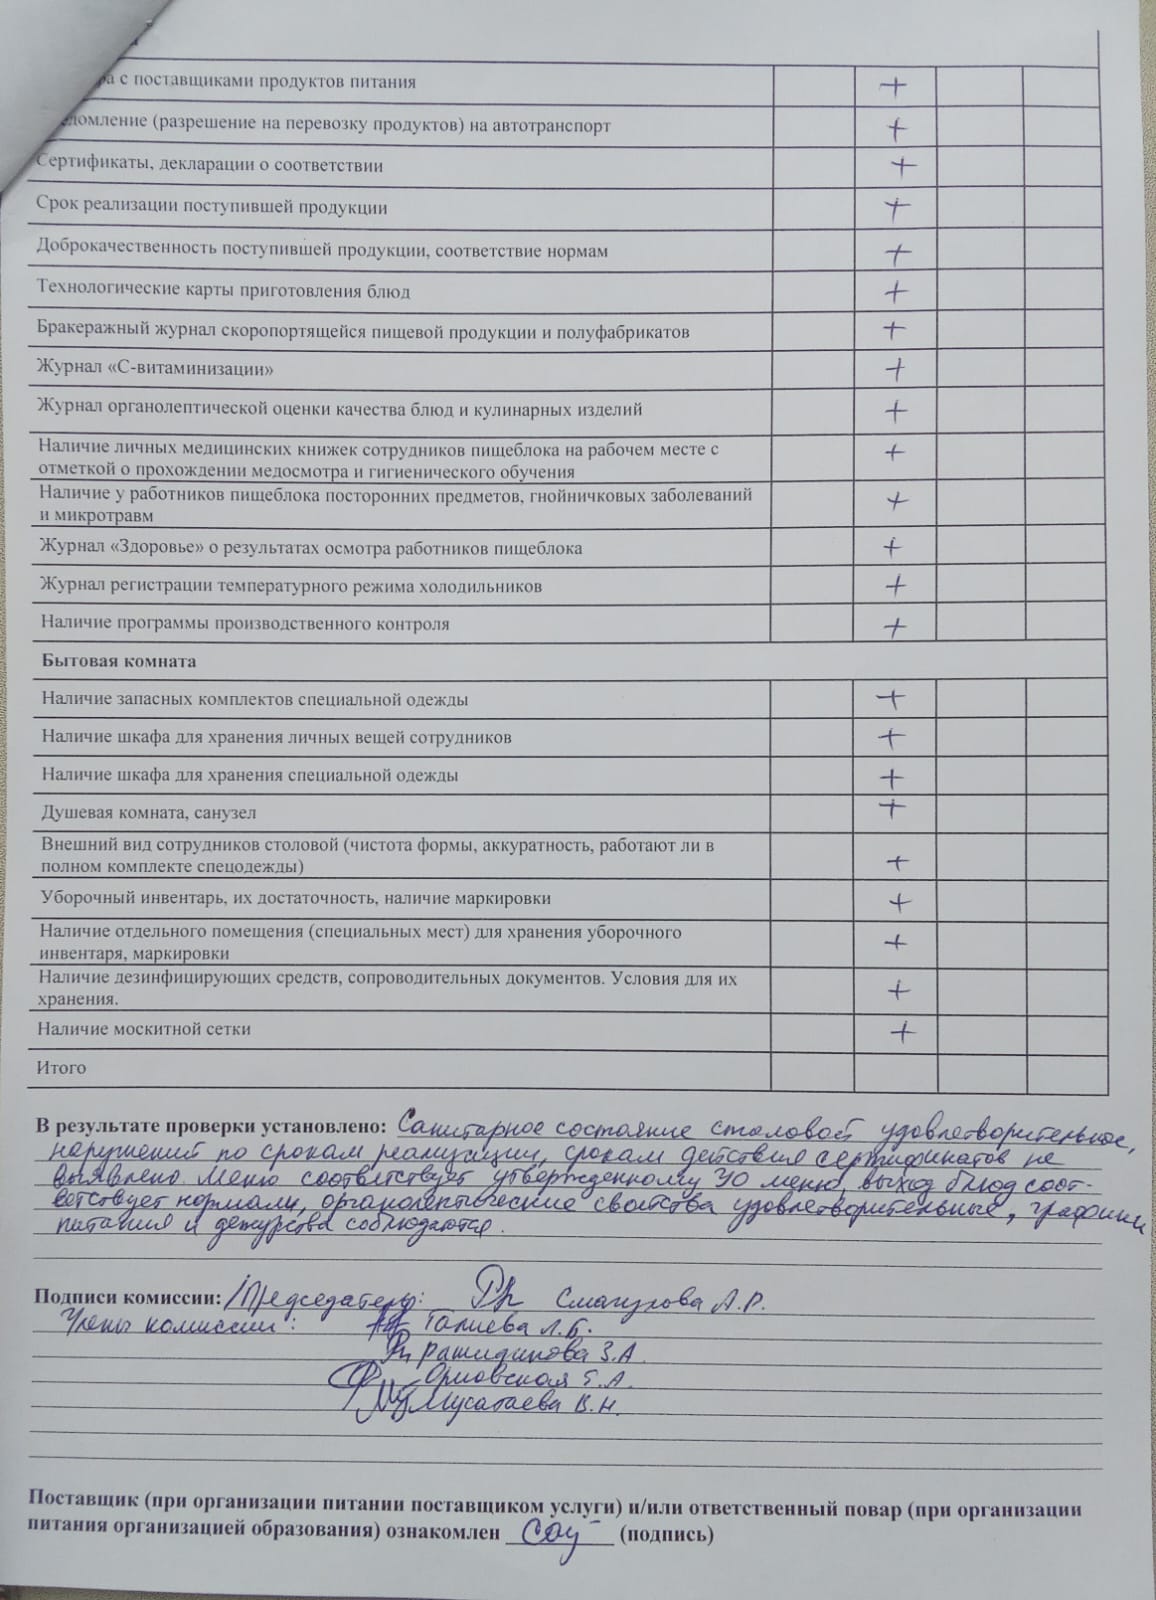 с поставщиками продуктов питания +
домление (разрешение на перевозку продуктов) на автотранспорт +
Сертификаты, декларации о соответствии +
Срок реализации поступившей продукции +
Доброкачественность поступившей продукции, соответствие нормам +
Технологические карты приготовления блюд +
Бракеражный журнал скоропортящейся пищевой продукции и полуфабрикатов +
Журнал «С-витаминизации» +
Журнал органолептической оценки качества блюд и кулинарных изделий +
Наличие личных медицинских книжек сотрудников пищеблока на рабочем месте с +
отметкой о прохождении медосмотра и гигиенического обучения
Наличие у работников пищеблока посторонних предметов, гнойничковых заболеваний +
и микротравм
Журнал «Здоровье» о результатах осмотра работников пищеблока +
Журнал регистрации температурного режима холодильников +
Наличие программы производственного контроля +
Бытовая комната
Наличие запасных комплектов специальной одежды +
Наличие шкафа для хранения личных вещей сотрудников +
Наличие шкафа для хранения специальной одежды +
Душевая комната, санузел +
Внешний вид сотрудников столовой (чистота формы, аккуратность, работают ли в
полном комплекте спецодежды) +
Уборочный инвентарь, их достаточность, наличие маркировки +
Наличие отдельного помещения (специальных мест) для хранения уборочного +
инвентаря, маркировки
Наличие дезинфицирующих средств, сопроводительных документов. Условия для их +
хранения.
Наличие москитной сетки +
Итого
В результате проверки установлено: Санитарное состояние столовой удовлетворительное,
нарушений по срокам реализации, срокам действия сертификатов не
выявлено. Меню соответствует утвержденному УО меню, выход блюд соот-
ветствует нормам, органолептические свойства удовлетворительные, графики
питания и дежурства соблюдаются.
Подписи комиссии: Председатель: Смагулова А.Р.
Члены комиссии: Галиева Л.Б.
Рашидинова З.А.
Орловская Т.А.
Мусатаева В.Н.
Поставщик (при организации питании поставщиком услуги) и/или ответственный повар (при организации
питания организацией образования) ознакомлен (подпись)